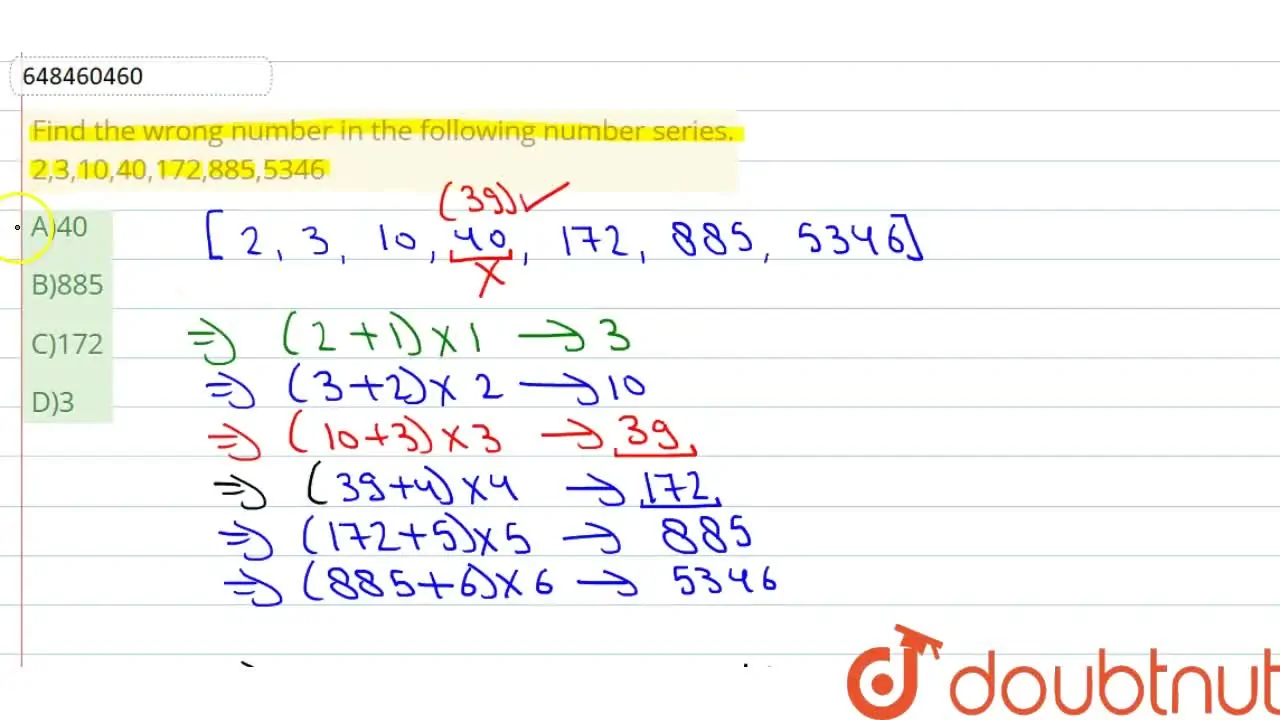 648460460
Find the wrong number in the following number series.
2,3,10,40,172,885,5346
(39)✓
A)40
[2, 3, 10, 40, 172, 885, 5346]
X
B)885
⇒ (2+1)×1 → 3
C)172
⇒ (3+2)×2 → 10
D)3
⇒ (10+3)×3 → 39
⇒ (39+4)×4 → 172
⇒ (172+5)×5 → 885
⇒ (885+6)×6 → 5346
doubtnut